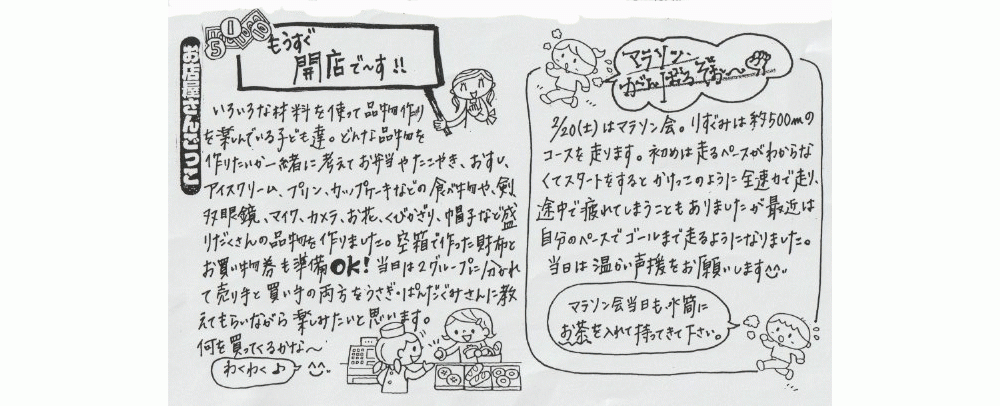 お店屋さんごっこ
もうすぐ
開店で〜す!!
いろいろな材料を使って品物作り
を楽しんでいる子ども達。どんな品物を
作りたいか一緒に考えてお弁当やたこやき、おすし、
アイスクリーム、プリン、カップケーキなどの食べ物や、剣
双眼鏡、マイク、カメラ、お花、くびかざり、帽子など盛
りだくさんの品物を作りました。空箱で作った財布と
お買い物券も準備OK!当日は2グループに分かれ
て売り手と買い手の両方をうさぎ・ぱんだぐみさんに教
えてもらいながら楽しみたいと思います。
何を買ってくるかな〜
わくわく♪
マラソン
がんばるぞお〜
2/20(土)はマラソン会。りすぐみは約500mの
コースを走ります。初めは走るペースがわからな
くてスタートをするとかけっこのように全速力で走り、
途中で疲れてしまうこともありましたが最近は
自分のペースでゴールまで走るようになりました。
当日は温かい声援をお願いします^^
マラソン会当日も、水筒に
お茶を入れて持ってきて下さい。